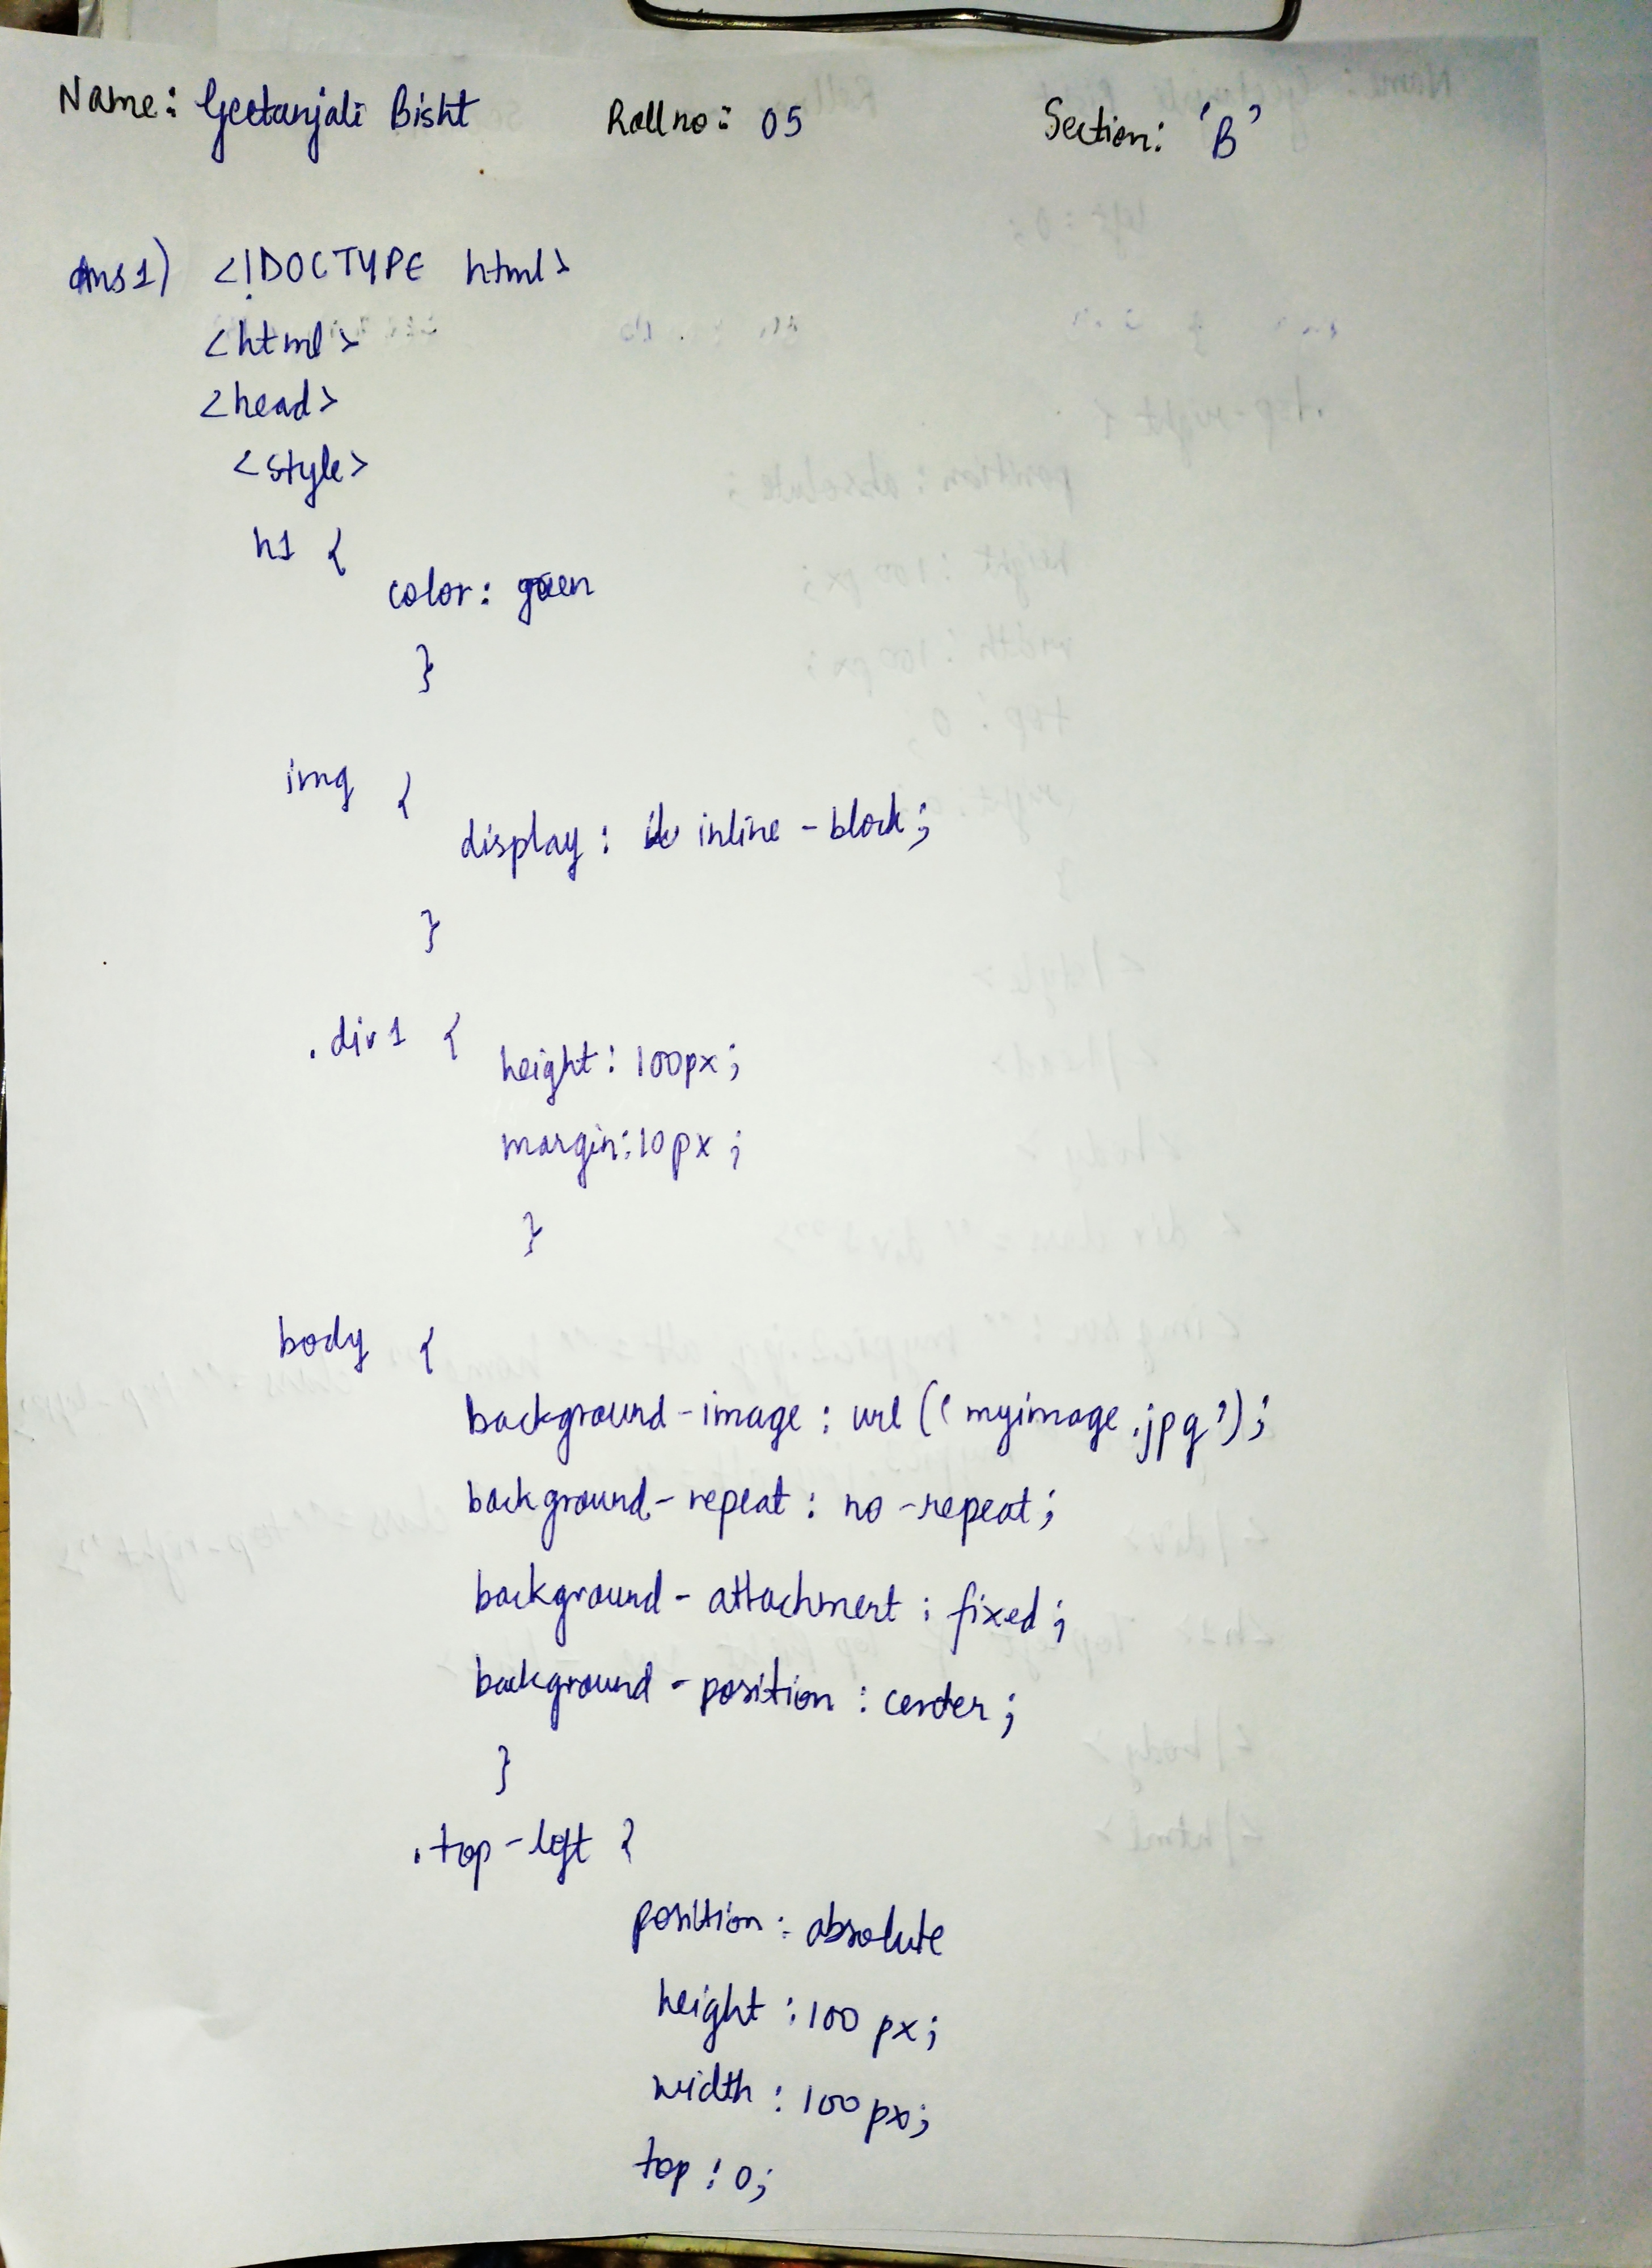 Name: Geetanjali Bisht Roll no: 05 Section: 'B'
Ans 1) <!DOCTYPE html>
<html>
<head>
<style>
h1 {
color: green
}
img {
display: inline-block;
}
.div1 {
height: 100px;
margin: 10px;
}
body {
background-image: url('myimage.jpg');
background-repeat: no-repeat;
background-attachment: fixed;
background-position: center;
}
.top-left {
position: absolute
height: 100 px;
width: 100px;
top: 0;